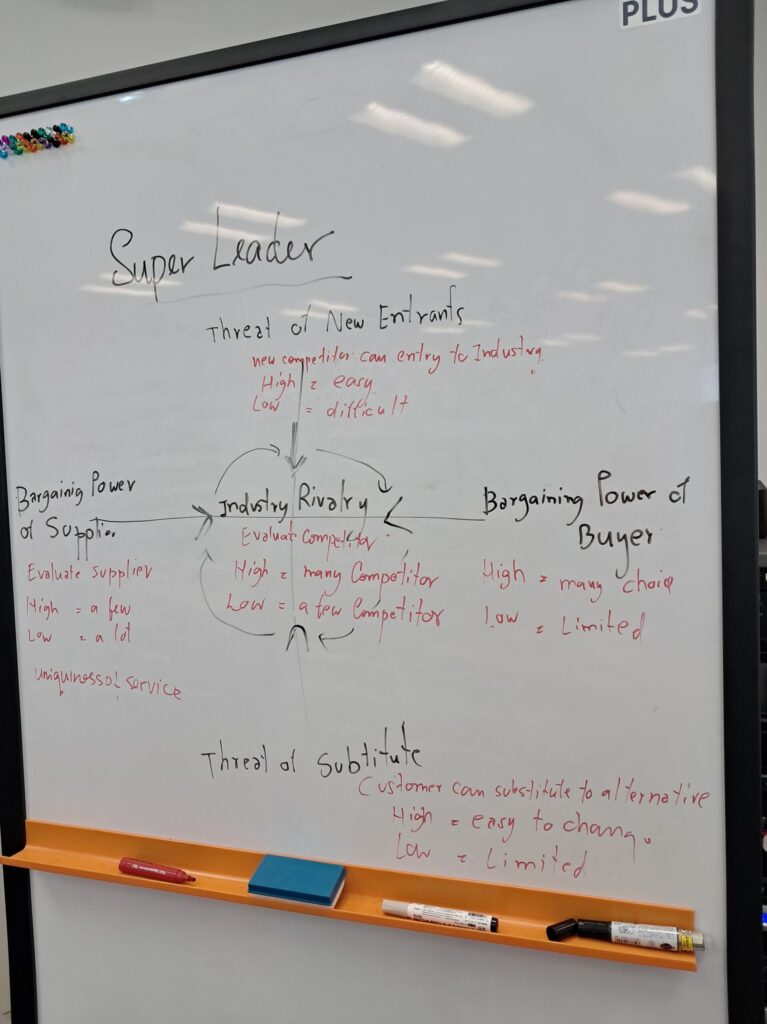 PLUS
Super Leader
Threat of New Entrants
new competitor can entry to Industry.
High = easy
Low = difficult
Bargainig Power
of Supplier
Evaluate supplier
High = a few
Low = a lot
uniquinessof service
Industry Rivalry
Evaluate Competitor
High = many Competitor
Low = a few Competitor
Bargaining Power of
Buyer
High = many choice
Low = Limited
Threat of Substitute
Customer can substitute to alternative
High = easy to chang.
Low = Limited